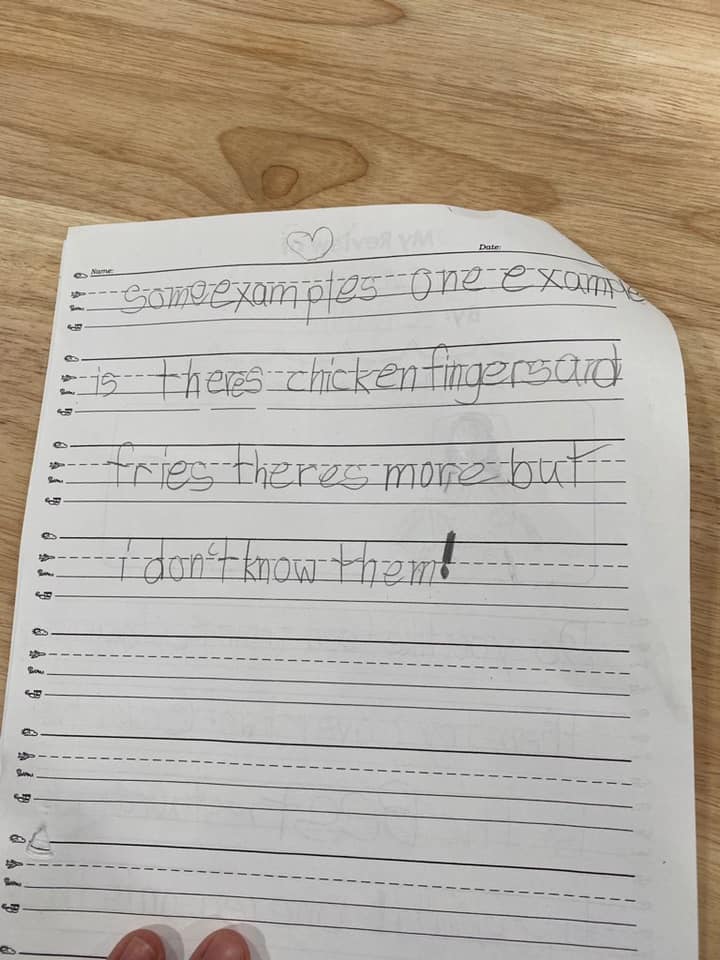 Name: Date:
some examples one example
is theres chicken fingers and
fries theres more but
i don't know them!